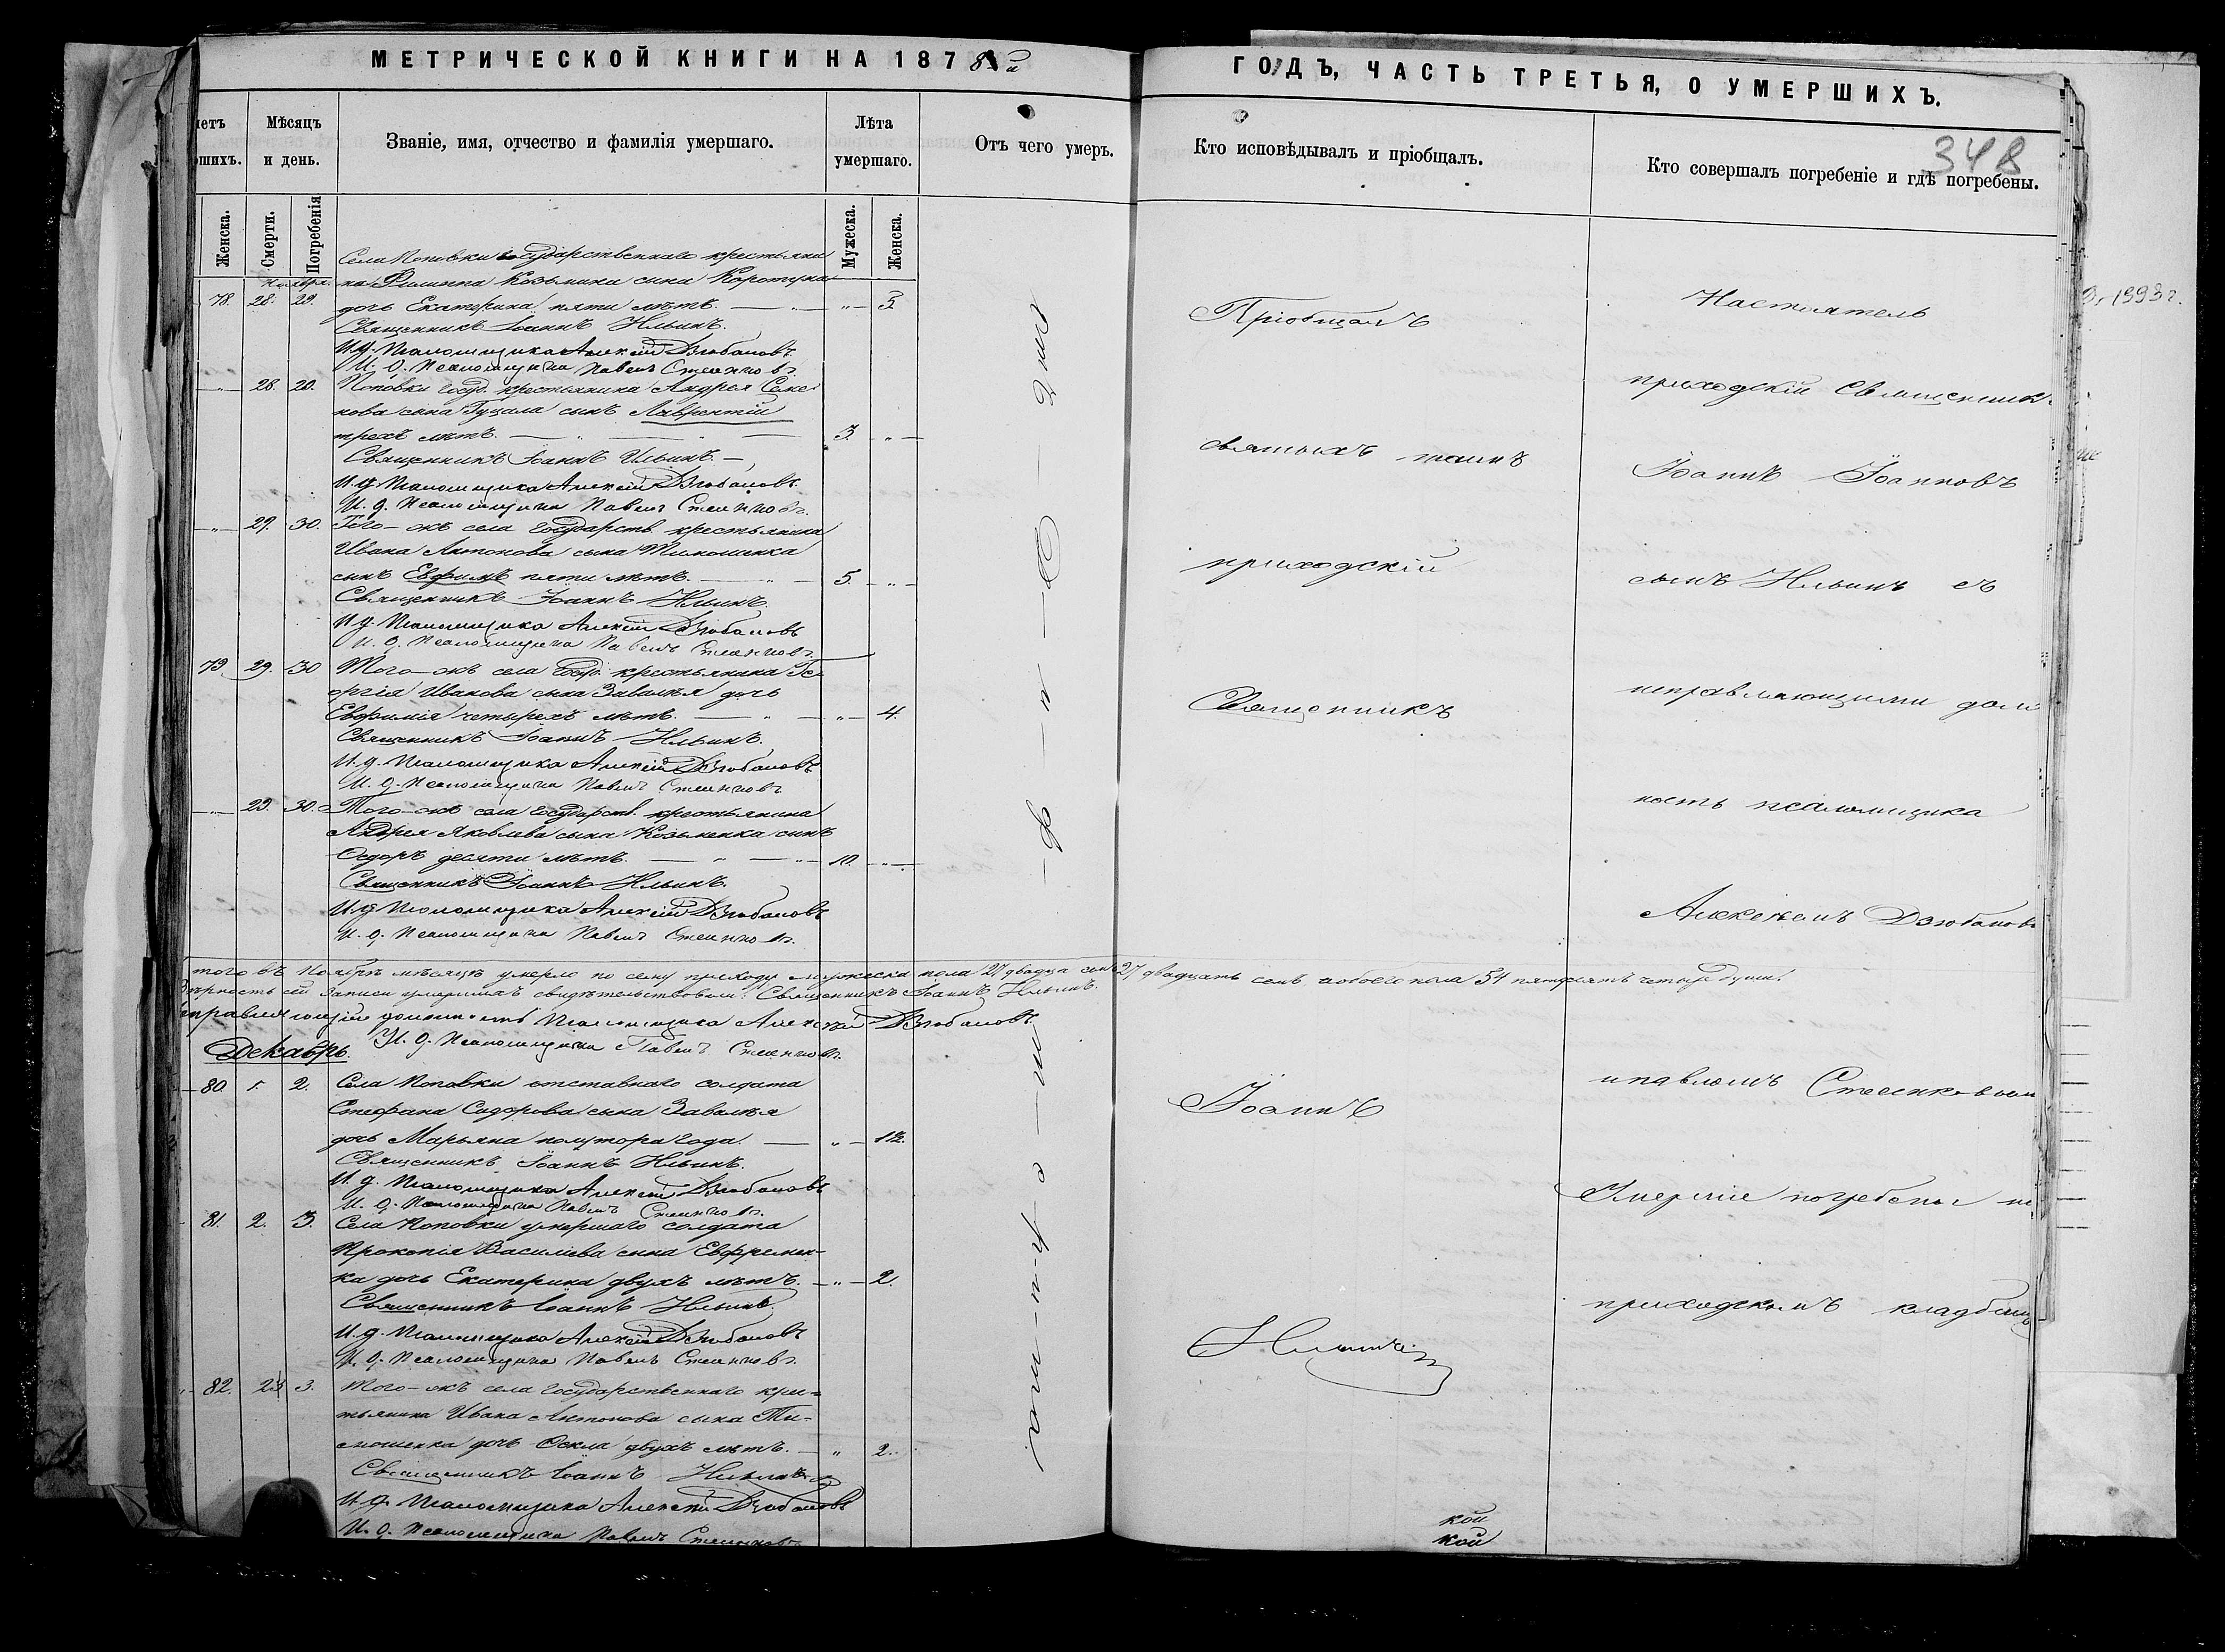 МЕТРИЧЕСКОЙ КНИГИ НА 1878й
ГОДЪ, ЧАСТЬ ТРЕТЬЯ, О УМЕРШИХЪ.
348
четъ
ршихъ.
Мѣсяцъ
и день.
Званіе, имя, отчество и фамилія умершаго.
Лѣта
умершаго.
Отъ чего умеръ.
Кто исповѣдывалъ и пріобщалъ.
Кто совершалъ погребеніе и гдѣ погребены.
Женска.
Смерти.
Погребенія
Мужеска.
Женска.
Ноября.
Села Поповки государственнаго крестьяни
на Филиппа Козьмина сына Коротуна
78. 28. 29. дочь Екатерина пяти лѣтъ. — „ — 5
Священникъ Іоаннъ Ильинъ.
И. д. Псаломщика Алексій Дзюбановъ
И. д. Псаломщика Павелъ
— „ — 28. 29. Поповки госуд. крестьянина Андрея Семе
нова сына Гуцала сынъ Лаврентій
трехъ лѣтъ. — „ — „ — 3. — „ —
Священникъ Іоаннъ Ильинъ —
И. д. Псаломщика Алексій Дзюбановъ.
И. д. Псаломщика Павелъ
— „ — 29. 30. Того-жъ села государств. крестьянина
Ивана Антонова сына Тимошенка
сынъ Евфимъ пяти лѣтъ. — „ — 5. — „ —
Священникъ Іоаннъ Ильинъ.
И. д. Псаломщика Алексій Дзюбановъ
И. д. Псаломщика Павелъ
79 29. 30 Того-жъ села госуд. крестьянина Ге
оргія Иванова сына Завалѣя дочь
Евфимія четырехъ лѣтъ. — „ — „ — 4.
Священникъ Іоаннъ Ильинъ.
И. д. Псаломщика Алексій Дзюбановъ
И. д. Псаломщика Павелъ
— „ — 29. 30. Того-жъ села государств. крестьянина
Андрея Яковлева сына Козьменка сынъ
Ѳедоръ десяти лѣтъ. — „ — „ — 10. — „ —
Священникъ Іоаннъ Ильинъ.
И. д. Псаломщика Алексій Дзюбановъ
И. д. Псаломщика Павелъ
того въ Ноябрѣ мѣсяцѣ умерло по сему приходу мужеска пола 27 двадца семь 27 двадцать семь обоего пола 54 пятдесятъ четыре души.
вѣрность сей записи умершихъ свидѣтельствовали: Священникъ Іоаннъ Ильинъ.
справляющій должность Псаломщика Алексій Дзюбановъ
И. д. Псаломщика Павелъ
Декабрь.
80. 1. 2. Села Поповки отставнаго солдата
Стефана Сидорова сына Завалѣя
дочь Марьяна полутора года. — „ — 1½.
Священникъ Іоаннъ Ильинъ.
И. д. Псаломщика Алексій Дзюбановъ
И. д. Псаломщика Павелъ
81. 2. 3. Села Поповки умершаго солдата
Прокопія Василіева сына Евфремен-
ка дочь Екатерина двухъ лѣтъ. — „ — 2.
Священникъ Іоаннъ Ильинъ.
И. д. Псаломщика Алексій Дзюбановъ
И. д. Псаломщика Павелъ
82. 3. Того-жъ села государственнаго кре=
стьянина Ивана Антонова сына Ти-
мошенка дочь Ѳекла двухъ лѣтъ. — „ 2.
Священникъ Іоаннъ Ильинъ
И. д. Псаломщика Алексій Дзюбановъ
И. д. Псаломщика Павелъ
Пріобщалъ
святыхъ таинъ
приходскій
Священникъ
Іоаннъ
Ильинъ
Настоятель
приходскій священникъ
Іоаннъ Іоанновъ
сынъ Ильинъ съ
исправляющими долж
ность псаломщика
Алексѣемъ Дзюбановы
и Павломъ
Умершіе погребены на
приходскомъ кладбищѣ
кой
кой
1993г.